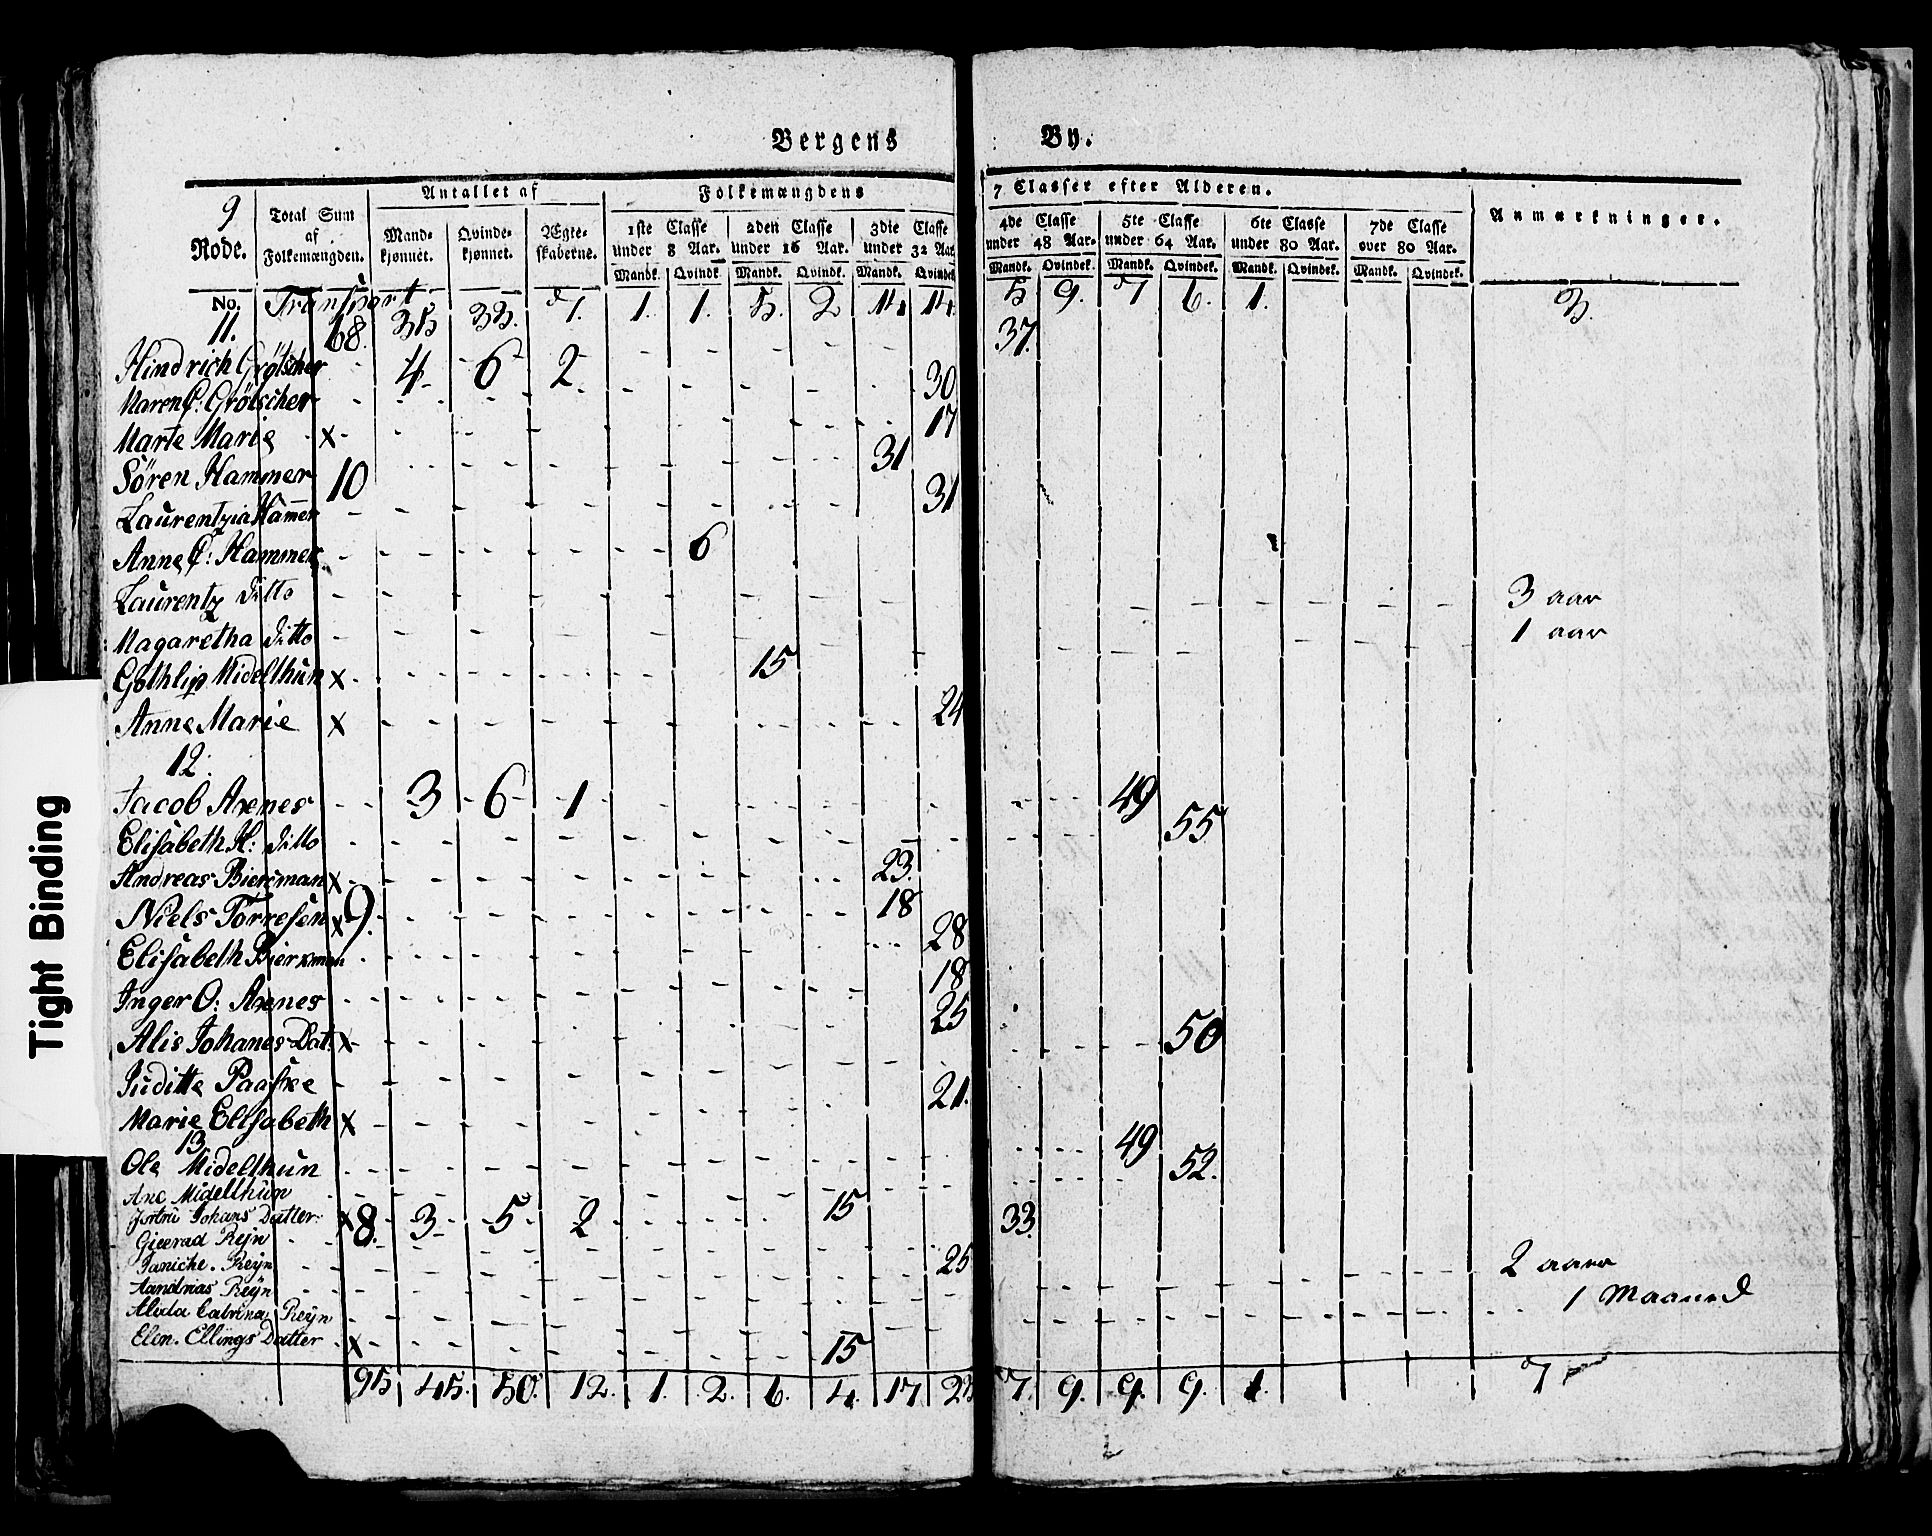 Bergens By.
9 Rode. Total Sum af Folkemængden. Antallet af Mandkjønnet. Qvindekjønnet. Ægteskaberne. Folkemængdens 7 Classer efter Alderen. Anmærkninger.
1ste Classe under 8 Aar. 2den Classe under 16 Aar. 3die Classe under 32 Aar. 4de Classe under 48 Aar. 5te Classe under 64 Aar. 6te Classe under 80 Aar. 7de Classe over 80 Aar.
Mandk. Qvindk. Mandk. Qvindk. Mandk. Qvindek. Mandk. Qvindek. Mandk. Qvindek. Mandk. Qvindek. Mandk. Qvindek.
No. Transport 68. 35 33. 7. 1. 1. 5. 2 14 14 5 9. 7 6. 1. 3.
11.
Hindrich Grötscher 4 6 2 37.
Maren C: Grötscher 30
Marte Marie x 17
Sören Hammer 10 31
Laurentzia Hammer 31
Anne C: Hammer 6
Laurentz Ditto 3 aar
Magaretha Ditto 1 aar
Gothlip Midelthun x 15
Anne Marie x 24
12.
Jacob Arenes 3 6 1 49
Elisabeth H: Ditto 55
Andreas Bierman x 23.
Niels Torresen x 9. 18
Elisabeth Bierman 28
Inger O: Arenes 18
Alis Johanes Dat. x 25
Juditte Paaske 50
Marie Elisabeth x 21.
13
Ole Midelthun 49
Ane Midelthun 52.
Johans Datter x 8. 3 5 2 15
Gierad Reÿn 33.
Janiche. Reÿn 25
Aandrias Reÿn 2 aar
Alida Catrina Reÿn 1 Maaned
Elen. Ellings Datter x 15
95 45. 50. 12. 1. 2. 6. 4. 17 23 7. 9. 9. 9. 1. 7
Tight Binding